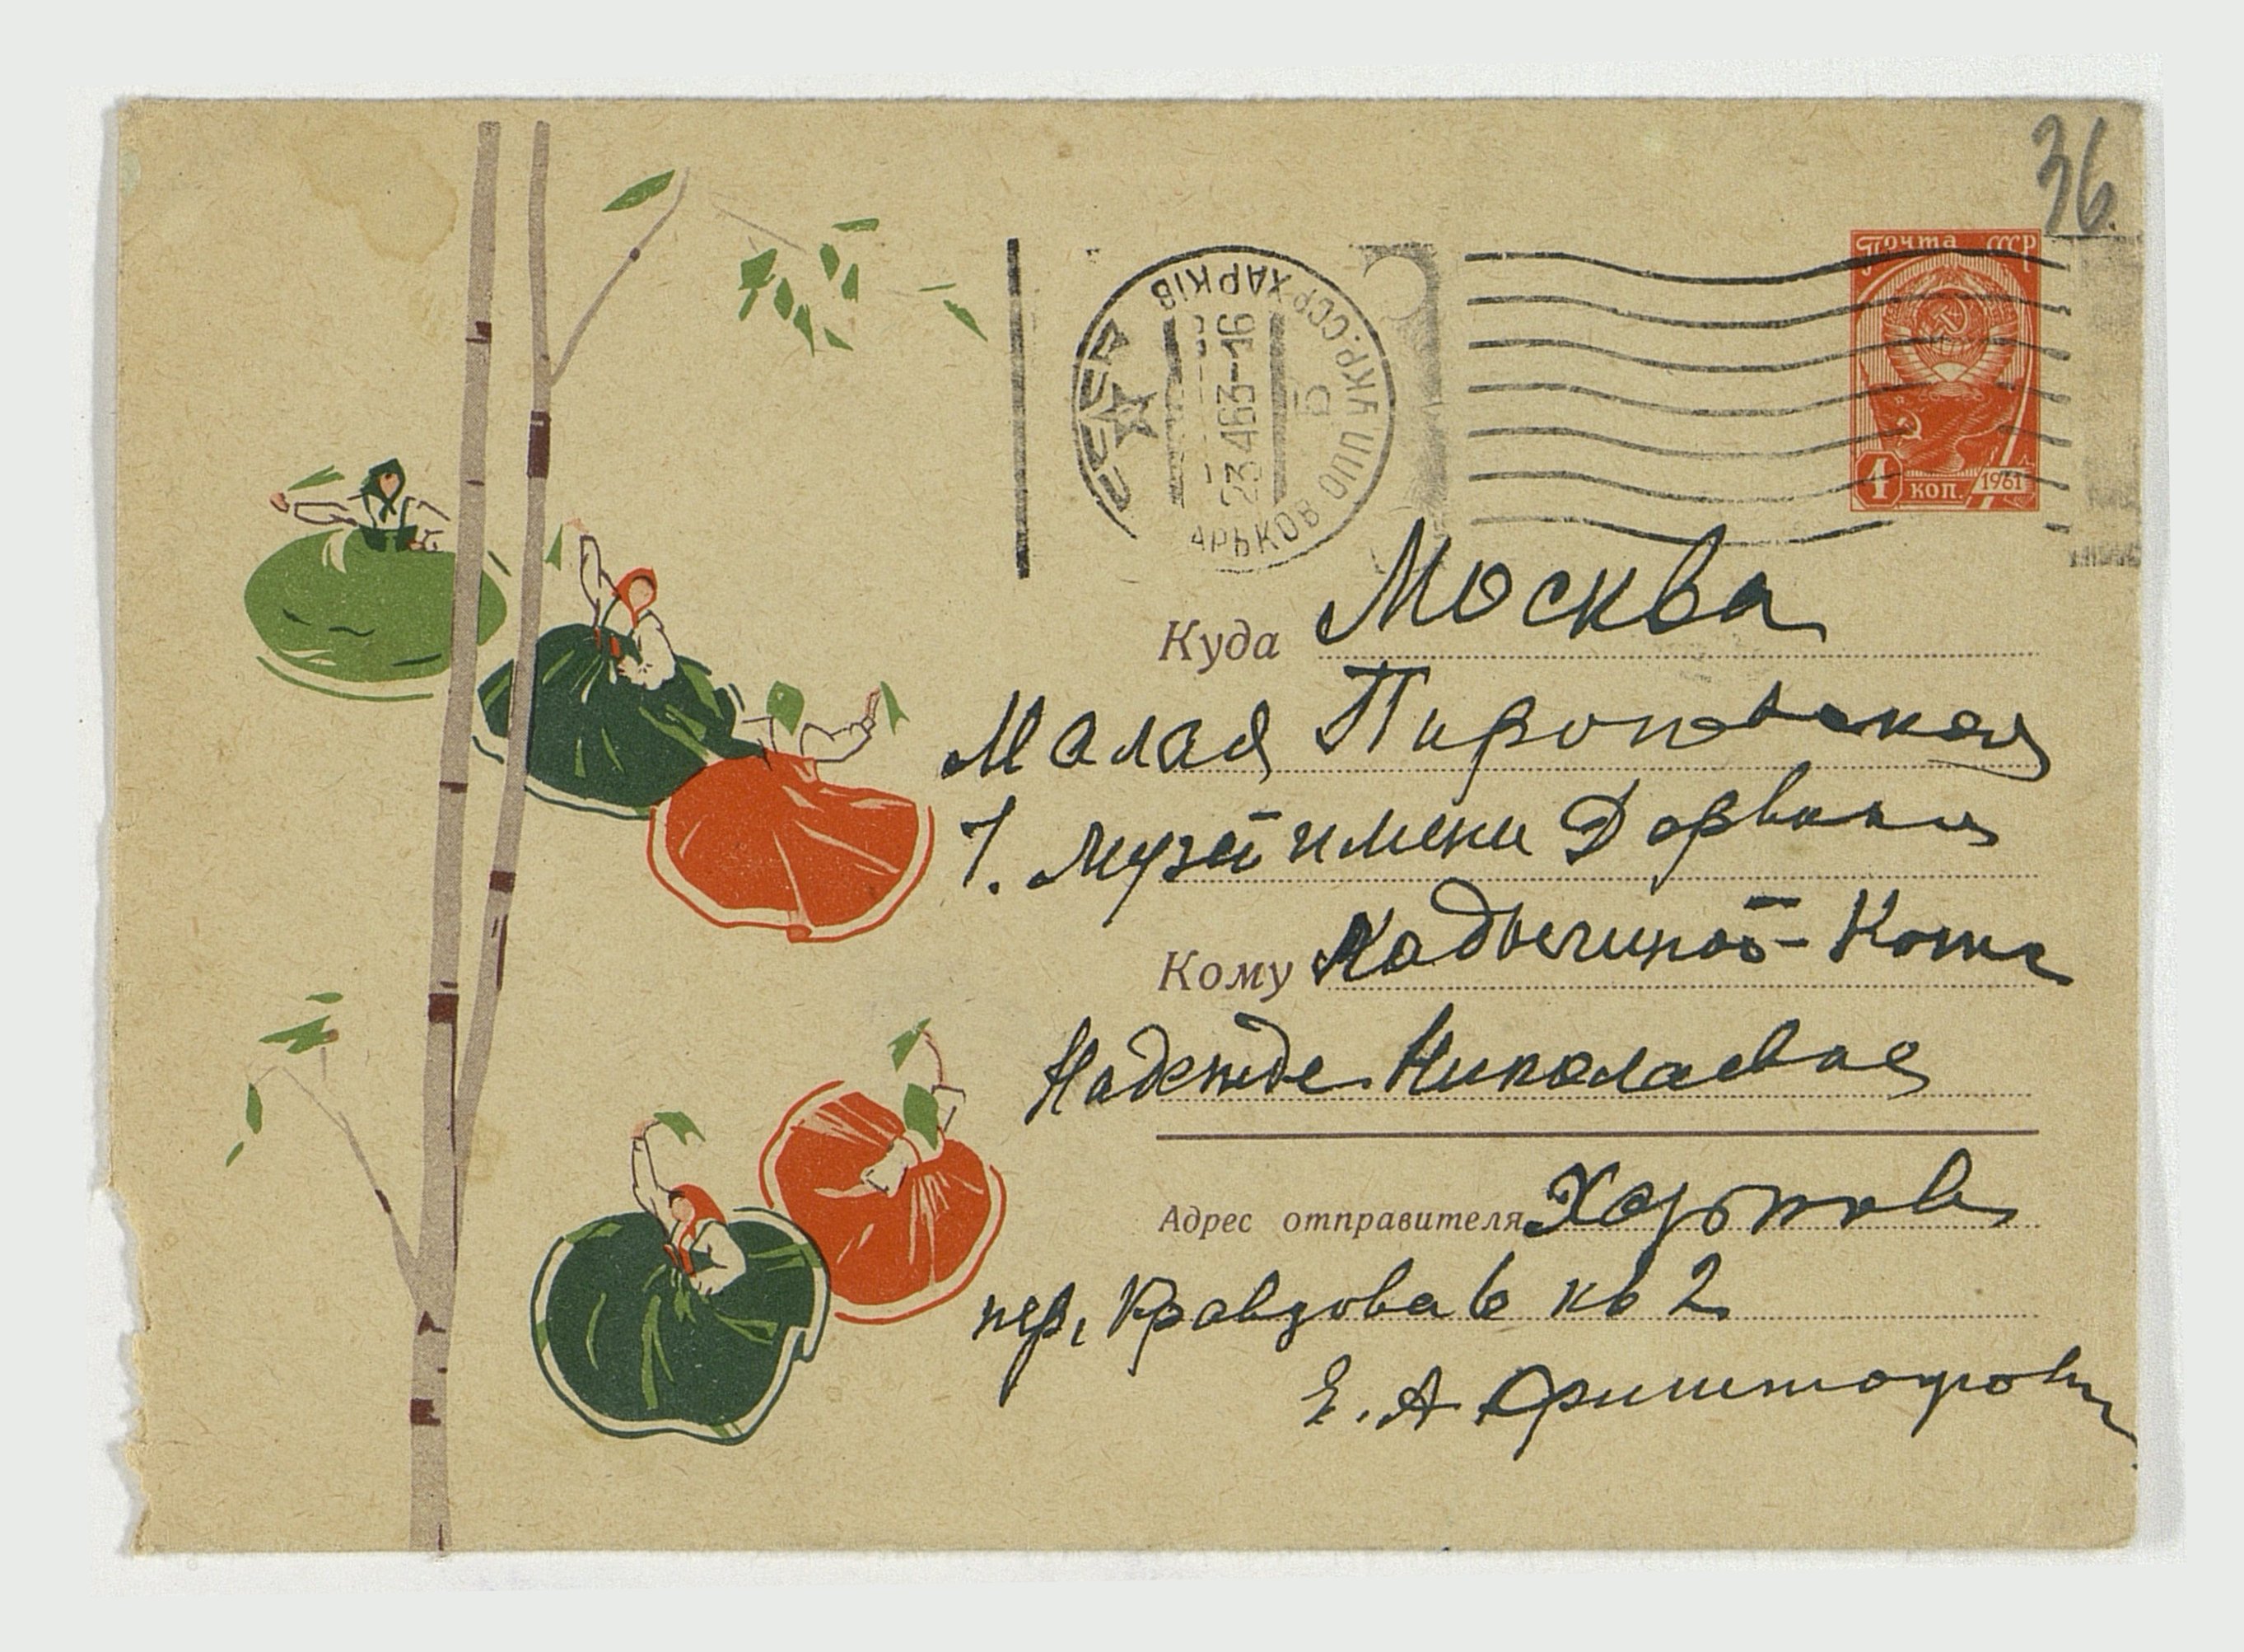 36.
Почта СССР
4 коп. 1961
СССР
ХАРКІВ
23 4 63-16
Б
АРЬКОВ ОПП УКР. ССР
Куда Москва
Малая Пироговская
1. Музей имени Дарвина
Кому Ладыгиной-Котс
Надежде Николаевне
Адрес отправителя Харьков
пер, Кравцова 6 кв 2
Е. А